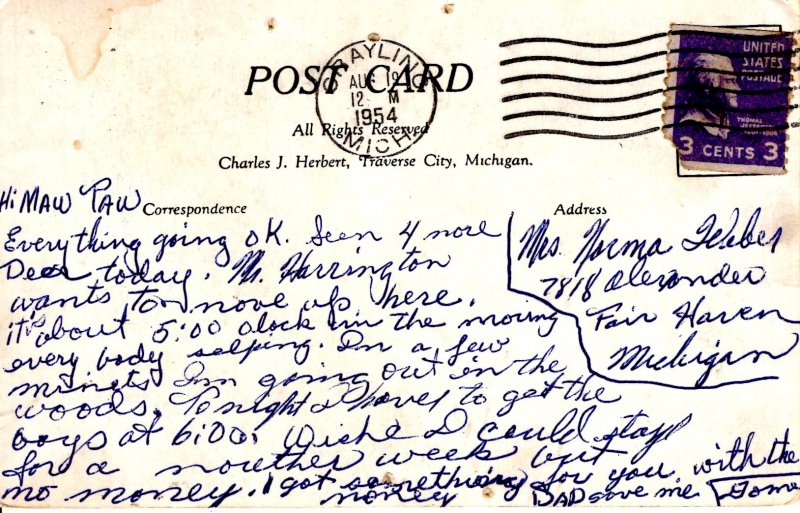 POST CARD
GRAYLING
AUG 19
12 M
1954
MICH.
UNITED
STATES
POSTAGE
THOMAS
JEFFERSON
3 CENTS 3
All Rights Reserved
Charles J. Herbert, Traverse City, Michigan.
Hi MAW PAW
Correspondence
Address
Everything going OK. Seen 4 more
Deer today. Mr. Harrington
wants too move up here.
it's about 5:00 clock in the moring
every body selping. In a few
minets I'm going out in the
woods. Tonight I haves to get the
boys at 6:00. Wishe I could stay
for a nouther week but
no money. I got something for you with the
money DAD gave me
Mrs. Norma
7818 Alexander
Fair Haven
Michigan